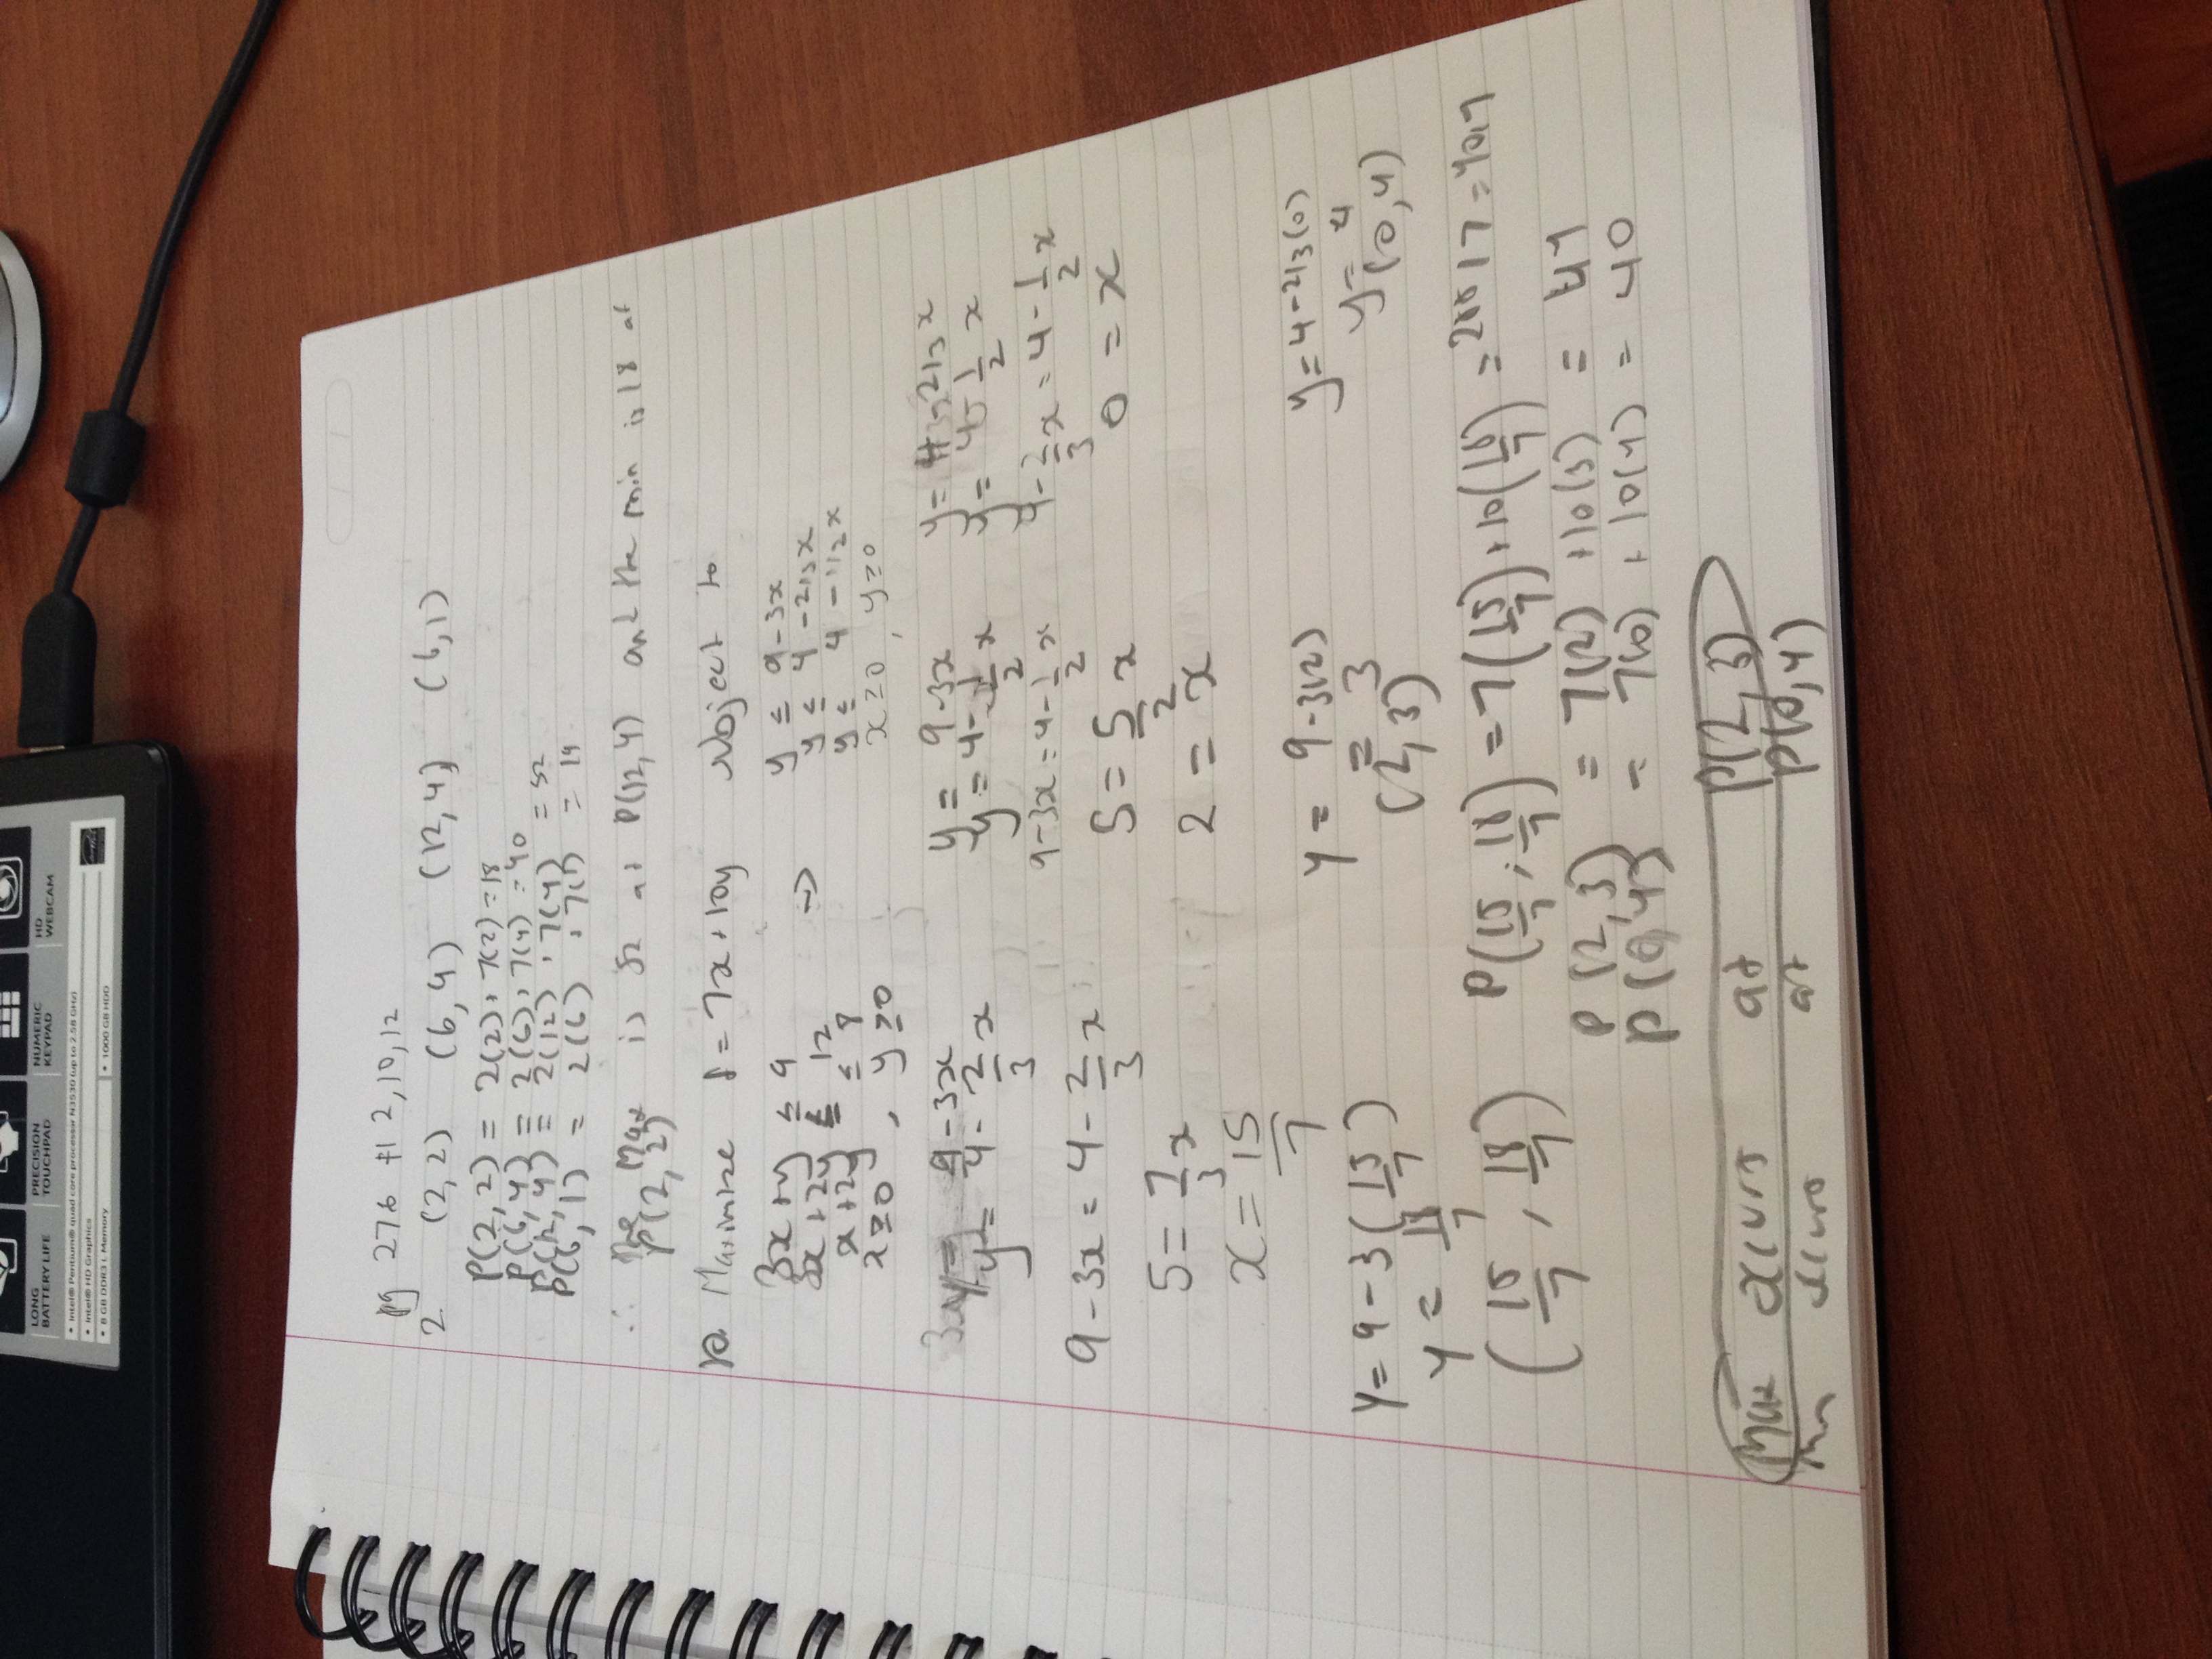 LONG BATTERY LIFE
PRECISION TOUCHPAD
NUMERIC KEYPAD
HD WEBCAM
• Intel® Pentium® quad core processor N3530 (up to 2.58 GHz)
• Intel® HD Graphics
• 8 GB DDR3 L Memory
• 1000 GB HDD
pg 276 #1 2, 10, 12
2 (2, 2) (6, 4) (12, 4) (6, 1)
P(2, 2) = 2(2) + 7(2) = 18
P(6, 4) = 2(6) + 7(4) = 40
P(12, 4) = 2(12) + 7(4) = 52
P(6, 1) = 2(6) + 7(1) = 19
∴ The Max is 52 at P(12, 4) and the min is 18 at
P(2, 2)
10. Maximize P = 7x + 10y subject to
3x + y ≤ 9 => y ≤ 9 - 3x
2x + 2y ≤ 12 y ≤ 4 - 2/3x
x + 2y ≤ 8 y ≤ 4 - 1/2x
x ≥ 0, y ≥ 0 x ≥ 0, y ≥ 0
y = 9 - 3x y = 9 - 3x y = 4 - 2/3x
y = 4 - 2/3 x y = 4 - 1/2 x y = 4 - 1/2 x
9 - 3x = 4 - 2/3 x 9 - 3x = 4 - 1/2 x 4 - 2/3 x = 4 - 1/2 x
5 = 7/3 x 5 = 5/2 x 0 = x
x = 15/7 2 = x
y = 9 - 3(15/7) y = 9 - 3(2) y = 4 - 2/3(0)
y = 18/7 = 3 y = 4
(15/7, 18/7) (2, 3) (0, 4)
P(15/7, 18/7) = 7(15/7) + 10(18/7) = 40.7
P(2, 3) = 7(2) + 10(3) = 44
P(0, 4) = 7(0) + 10(4) = 40
Max occurs at P(2, 3)
Min occurs at P(0, 4)